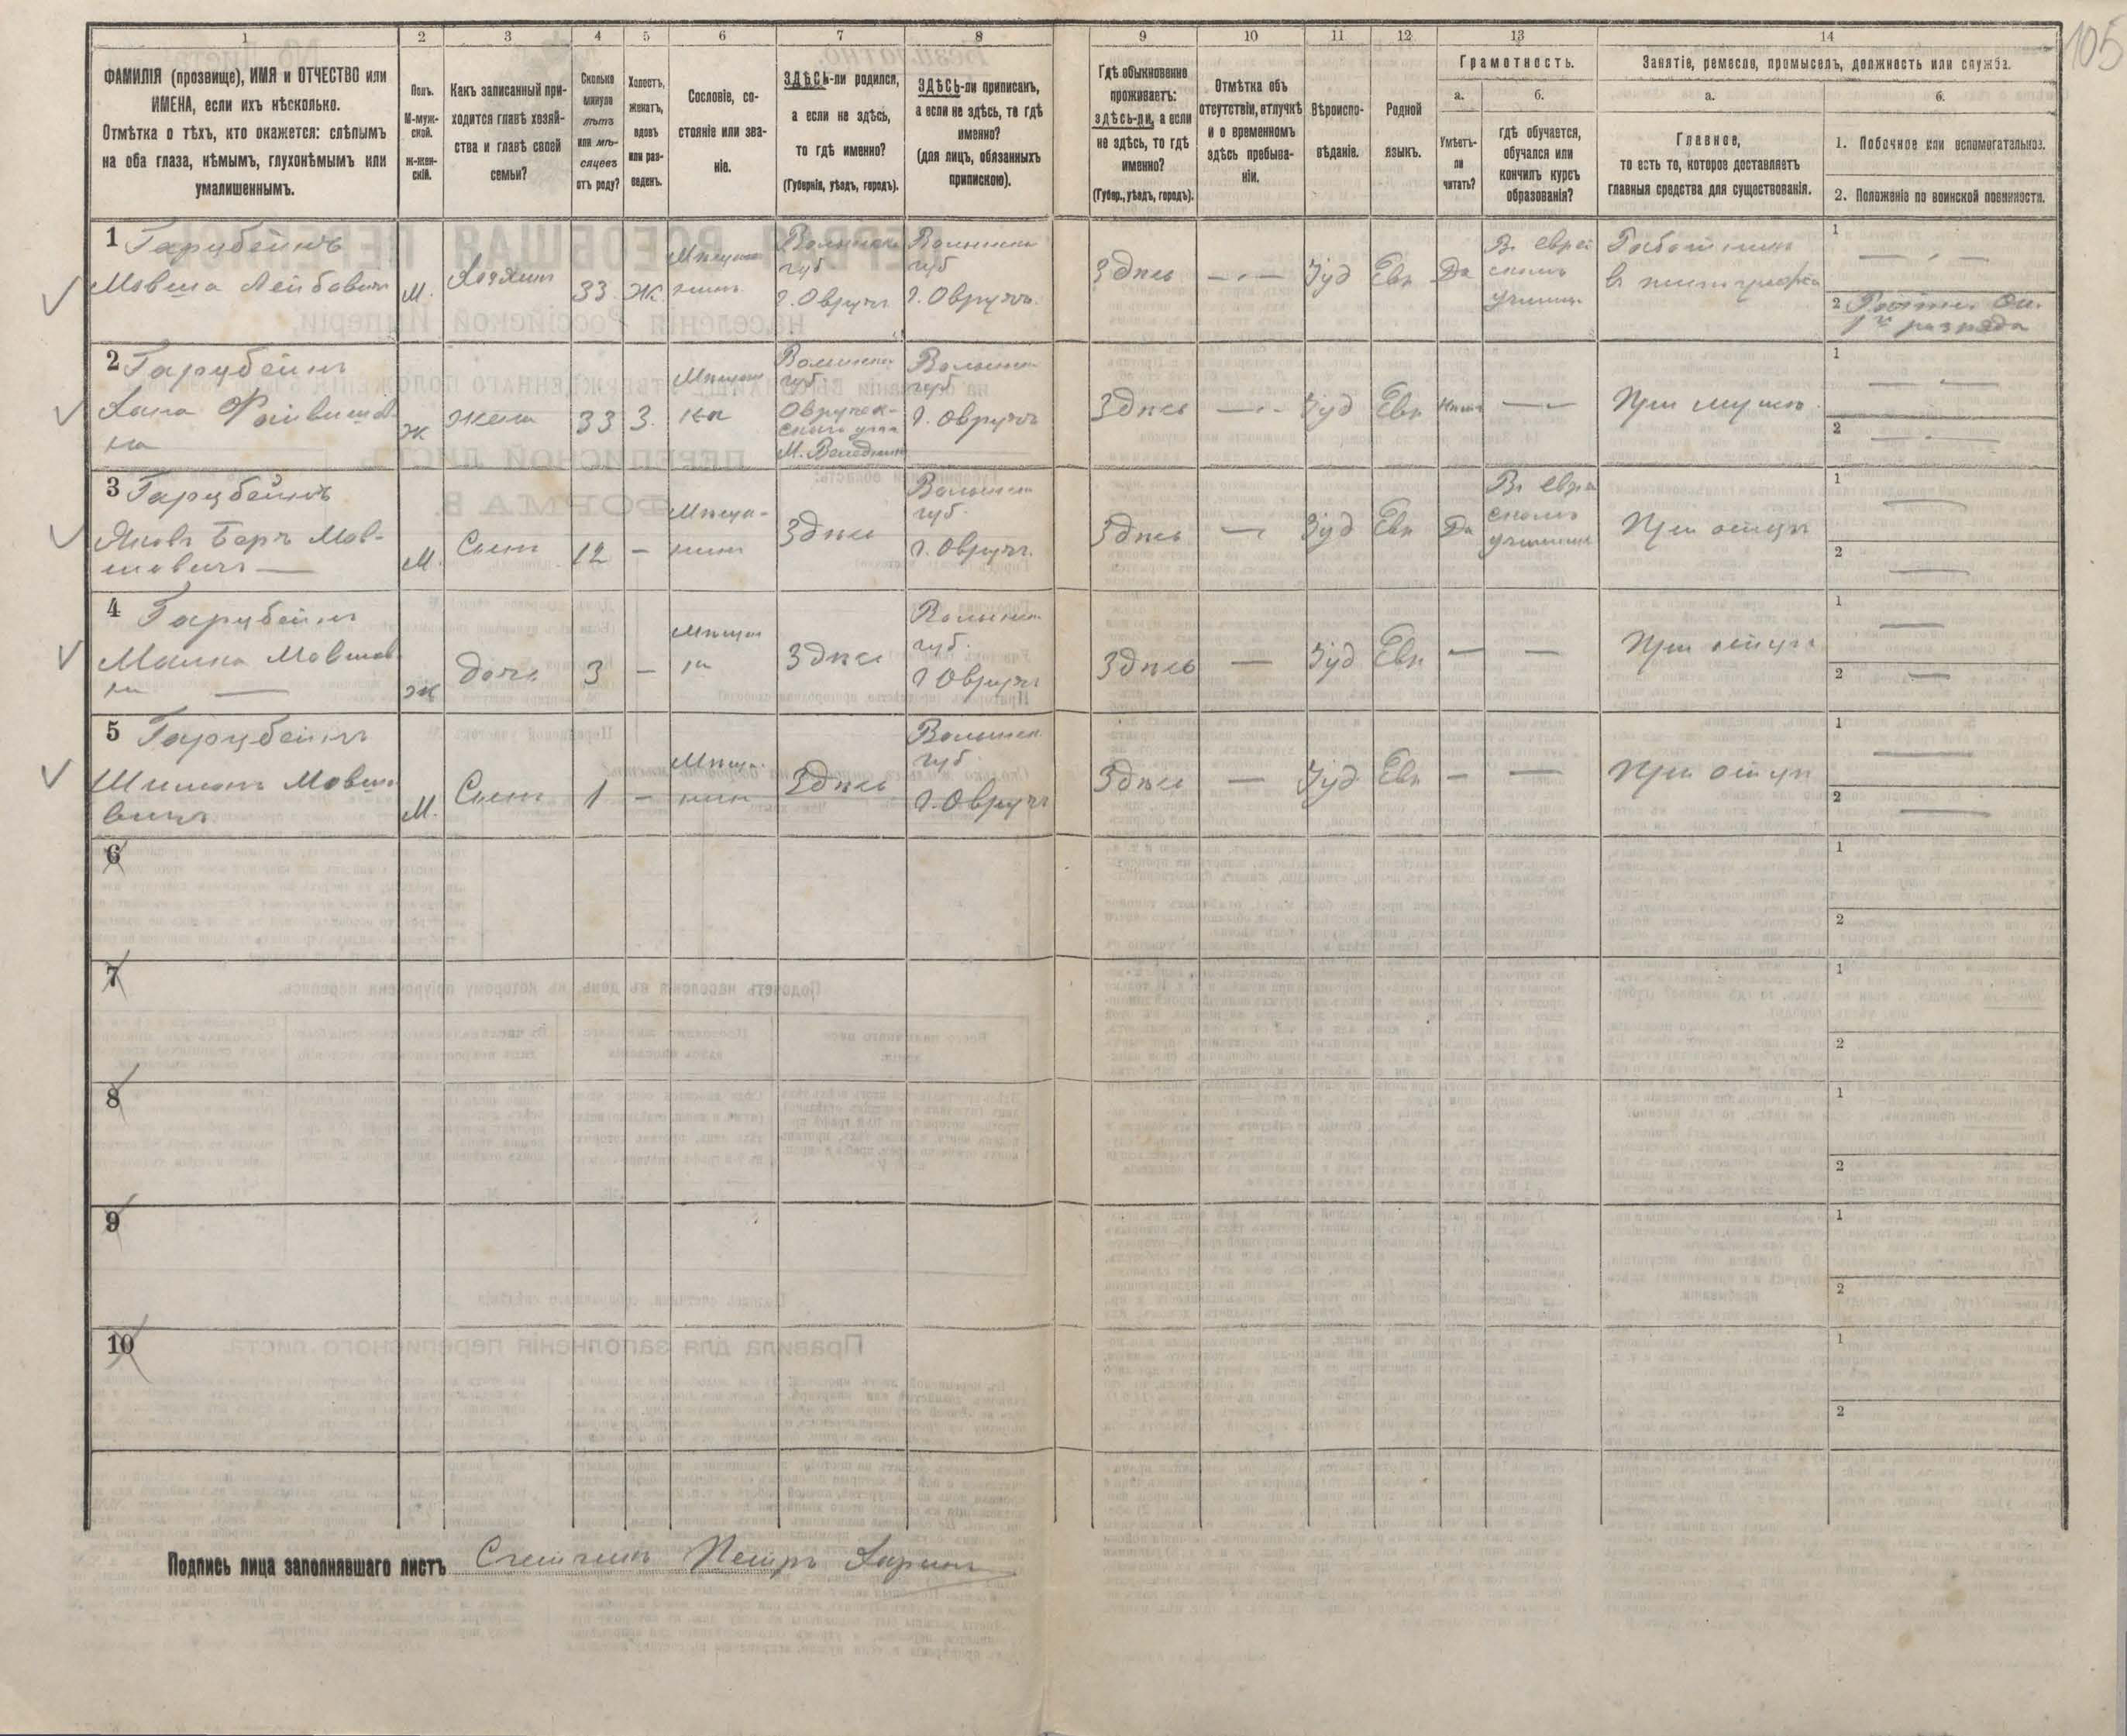 105
1 2 3 4 5 6 7 8 9 10 11 12 13 14
ФАМИЛІЯ (прозвище), ИМЯ и ОТЧЕСТВО или
ИМЕНА, если ихъ нѣсколько.
Отмѣтка о тѣхъ, кто окажется: слѣпымъ
на оба глаза, нѣмымъ, глухонѣмымъ или
умалишеннымъ.
Полъ.
М-муж-
ской.
Ж-жен-
скій.
Какъ записанный при-
ходится главѣ хозяй-
ства и главѣ своей
семьи?
Сколько
минуло
лѣтъ
или мѣ-
сяцевъ
отъ роду?
Холостъ,
женатъ,
вдовъ
или раз-
веденъ.
Сословіе, со-
стояніе или зва-
ніе.
ЗДѢСЬ-ли родился,
а если не здѣсь,
то гдѣ именно?
(Губернія, уѣздъ, городъ).
ЗДѢСЬ-ли приписанъ,
а если не здѣсь, то гдѣ
именно?
(для лицъ, обязанныхъ
припискою).
Гдѣ обыкновенно
проживаетъ:
здѣсь-ли, а если
не здѣсь, то гдѣ
именно?
(Губер., уѣздъ, городъ).
Отмѣтка объ
отсутствіи, отлучкѣ
и о временномъ
здѣсь пребыва-
ніи.
Вѣроиспо-
вѣданіе.
Родной
языкъ.
Грамотность.
а.
Умѣетъ-
ли
читать?
б.
гдѣ обучается,
обучался или
кончилъ курсъ
образованія?
Занятіе, ремесло, промыселъ, должность или служба.
а.
Главное,
то есть то, которое доставляетъ
главныя средства для существованія.
б.
1. Побочное или вспомогательное.
2. Положеніе по воинской повинности.
1 Гарубейнъ
Мовша Лейбовичъ
М.
Хозяинъ
33
Ж.
Мѣщан
нинъ
Волынск
губ
г. Овручъ
Волынск
губ
г. Овручъ
Здѣсь
— . —
Іуд
Евр
Да
Въ еврей
скомъ
училищ
1 — . —
2
1го разряда
2 Гарубейнъ
Хана
на
ж
жена
33
З.
Мѣщан
ка
Волынск
губ
Овручск-
скаго уѣзд
М. Веледник
Волынск
губ
г. Овручъ
Здѣсь
— . —
Іуд
Евр
Нѣтъ
— . —
При мужѣ
1 — . —
2 — . —
3 Гарубейнъ
Яковъ Беръ Мов-
шовичъ —
М.
Сынъ
12
—
Мѣща-
нинъ
Здѣсь
Волынск
губ.
г. Овручъ.
Здѣсь
—
Іуд
Евр
Да
Въ евре
скомъ
училищѣ
При отцѣ
1 —
2 —
4 Гарубейнъ
Малка Мовшов
на —
ж
дочь
3
—
Мѣщан
ка
Здѣсь
Волынск
губ.
г Овручъ
Здѣсь
—
Іуд
Евр
—
—
При отцѣ
1 —
2 —
5 Гарубейнъ
Шимонъ Мовшо
вичъ
М.
Сынъ
1
—
Мѣща.
нин
Здѣсь
Волынск
губ.
г. Овручъ
Здѣсь
—
Іуд
Евр
—
—
При отцѣ
1 —
2 —
6
1
2
7
1
2
8
1
2
9
1
2
10
1
2
Подпись лица заполнявшаго листъ Счетчикъ Петръ